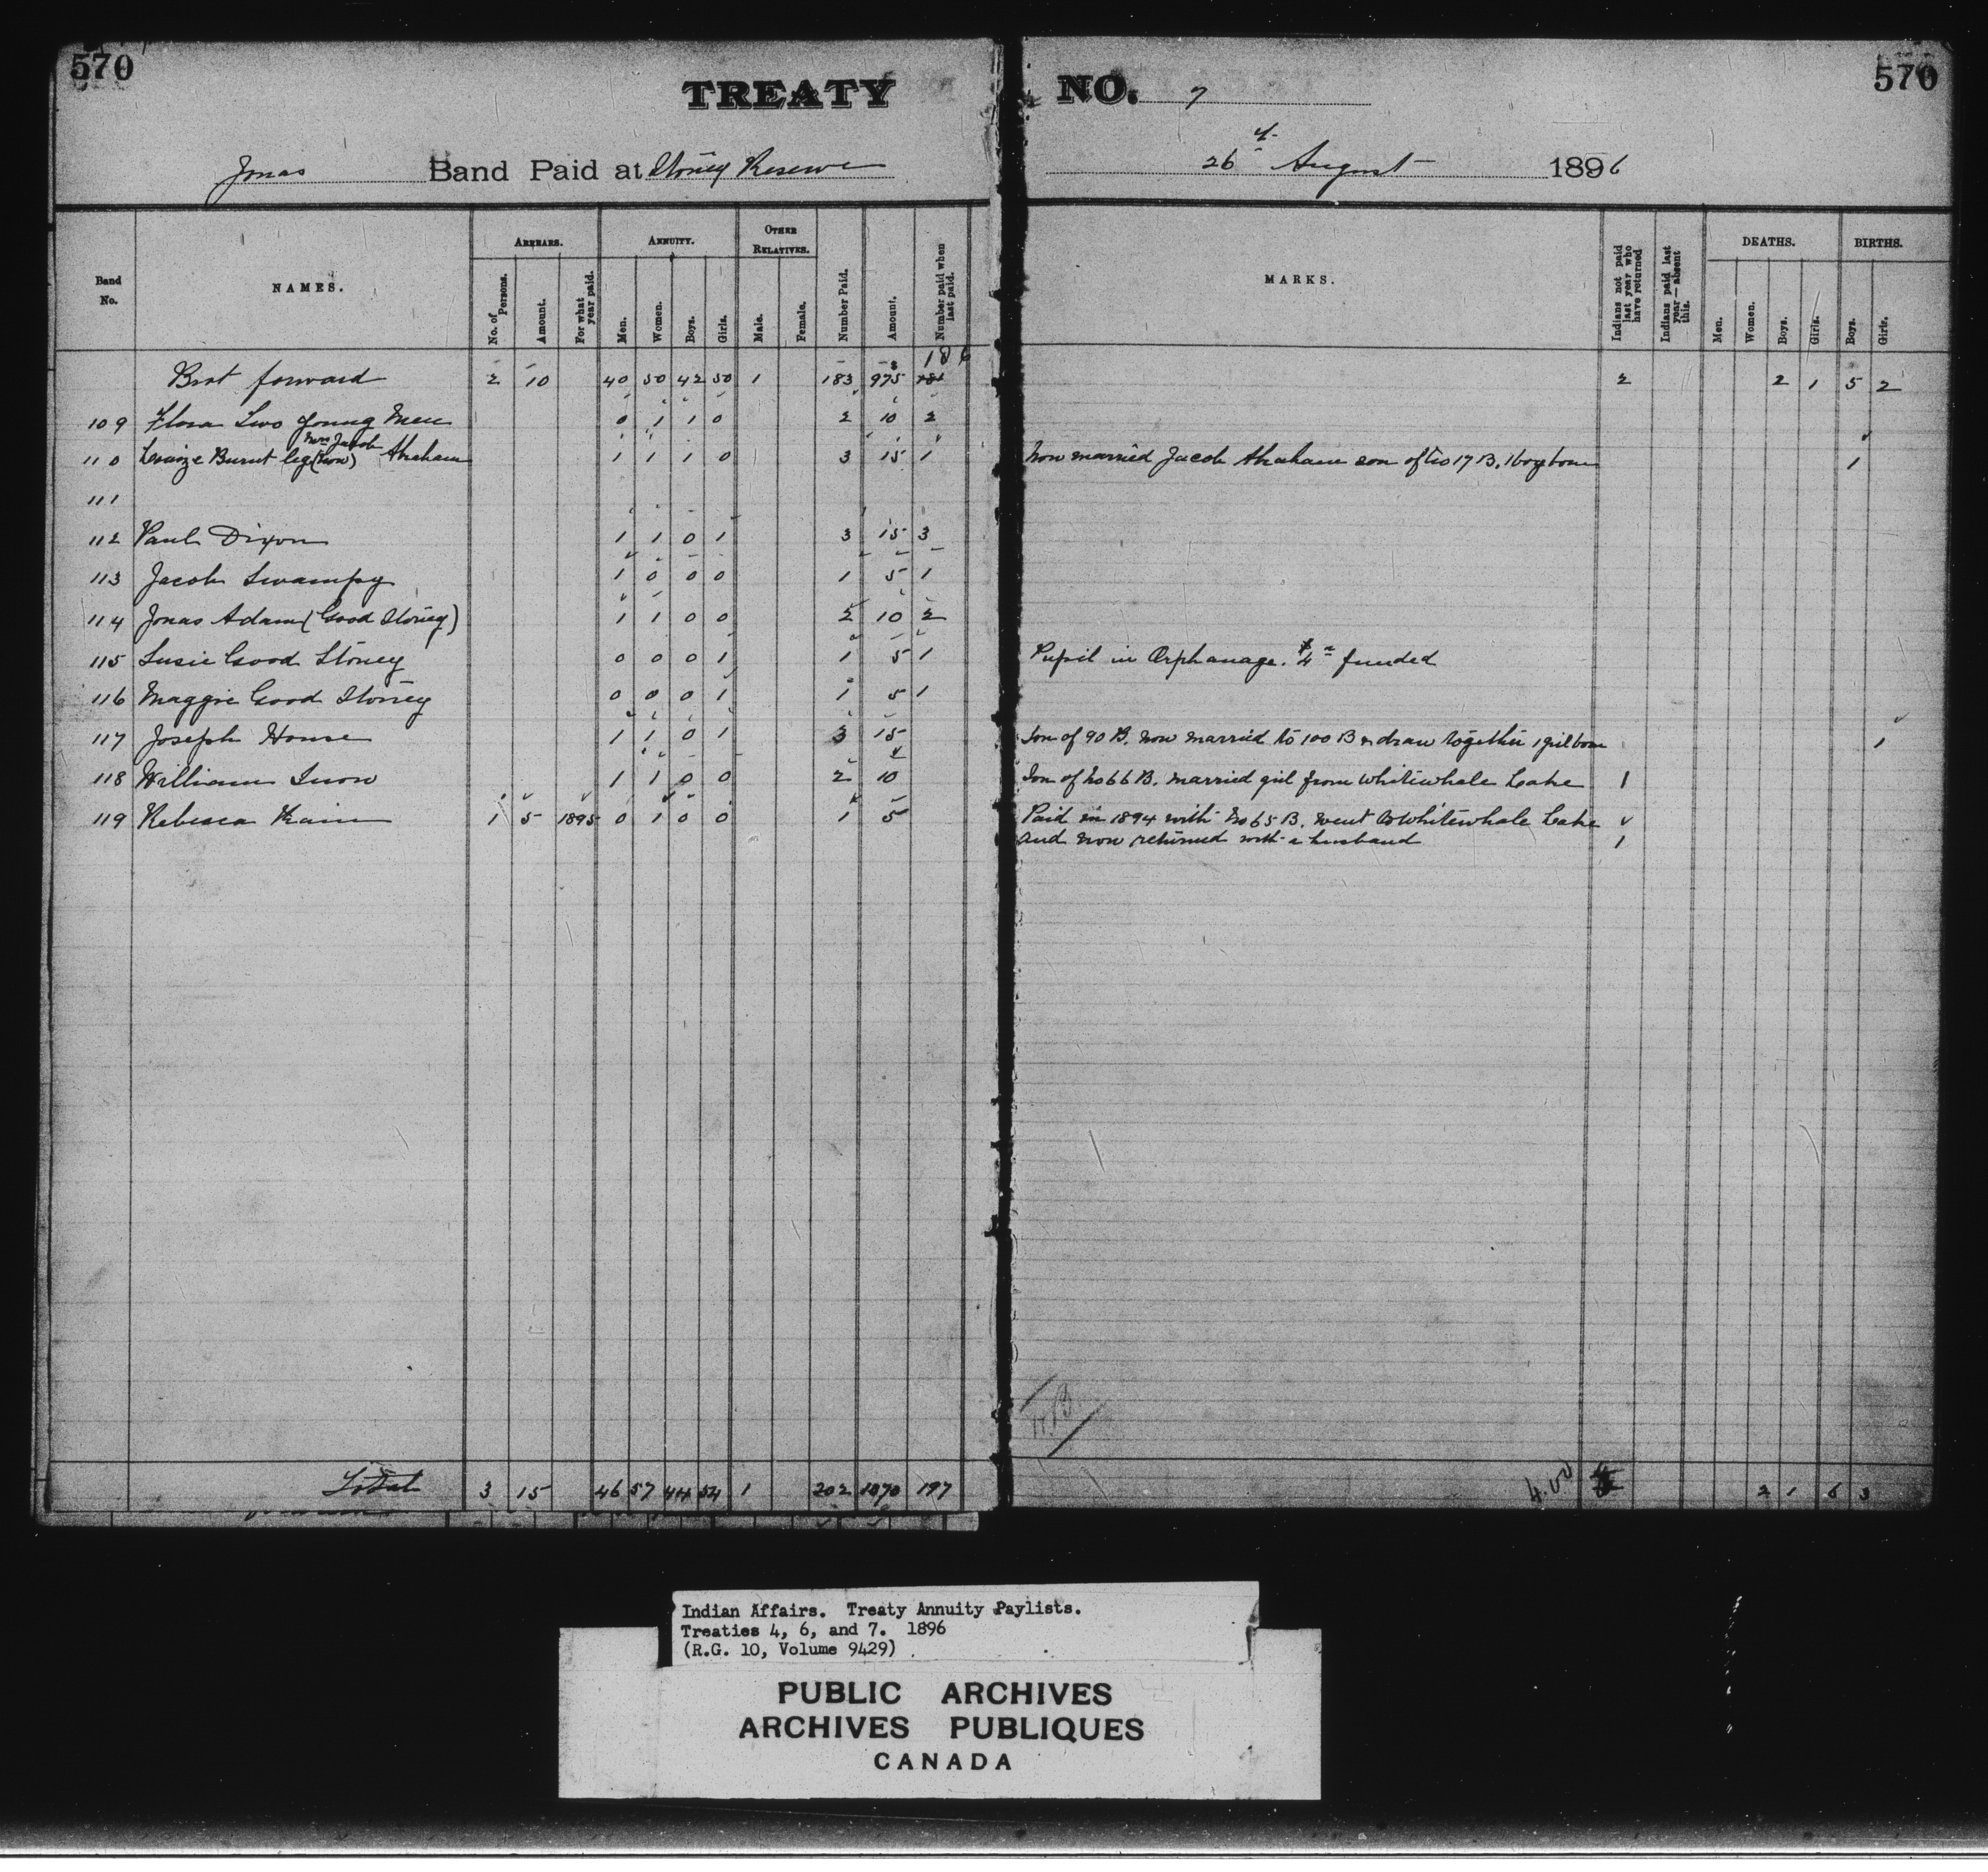 570
570
TREATY NO. 7
Jonas Band Paid at Stoney Reserve 26 August 1896
Band No.
NAMES.
ARREARS.
No. of Persons.
Amount.
For what year paid.
ANNUITY.
Men.
Women.
Boys.
Girls.
OTHER RELATIVES.
Male.
Female.
Number Paid.
Amount.
Number paid when last paid.
MARKS.
Indians not paid last year who have returned
Indians paid last year—absent this.
DEATHS.
Men.
Women.
Boys.
Girls.
BIRTHS.
Boys.
Girls.
186
Brot forward 2 10 40 50 42 50 1 183 975 2 2 1 5 2
109 Flora Two Young Men 0 1 1 0 2 10 2
Mrs Jacob
110 Louize Burnt leg (now) Abraham 1 1 1 0 3 15 1 Now married Jacob Abraham son of No 17 B. 1 boy born 1
111
112 Paul Dixon 1 1 0 1 3 15 3
113 Jacob Swampy 1 0 0 0 1 5 1
114 Jonas Adam (Good Stoney) 1 1 0 0 2 10 2
115 Susie Good Stoney 0 0 0 1 1 5 1 Pupil in Orphanage. $4 funded
116 Maggie Good Stoney 0 0 0 1 1 5 1
117 Joseph House 1 1 0 1 3 15 Son of 90 B. now married to 100 B & draw together 1 girl born 1
118 William Snow 1 1 0 0 2 10 Son of No 66 B. married girl from Whitewhale Lake 1
119 Rebecca 1 5 1895 0 1 0 0 1 5 Paid in 1894 with No 65 B. went to Whitewhale Lake
and now returned with a husband 1
Total 3 15 46 57 44 54 1 202 1070 197 4.00 2 1 6 3
Indian Affairs. Treaty Annuity Paylists.
Treaties 4, 6, and 7. 1896
(R.G. 10, Volume 9429)
PUBLIC ARCHIVES
ARCHIVES PUBLIQUES
CANADA